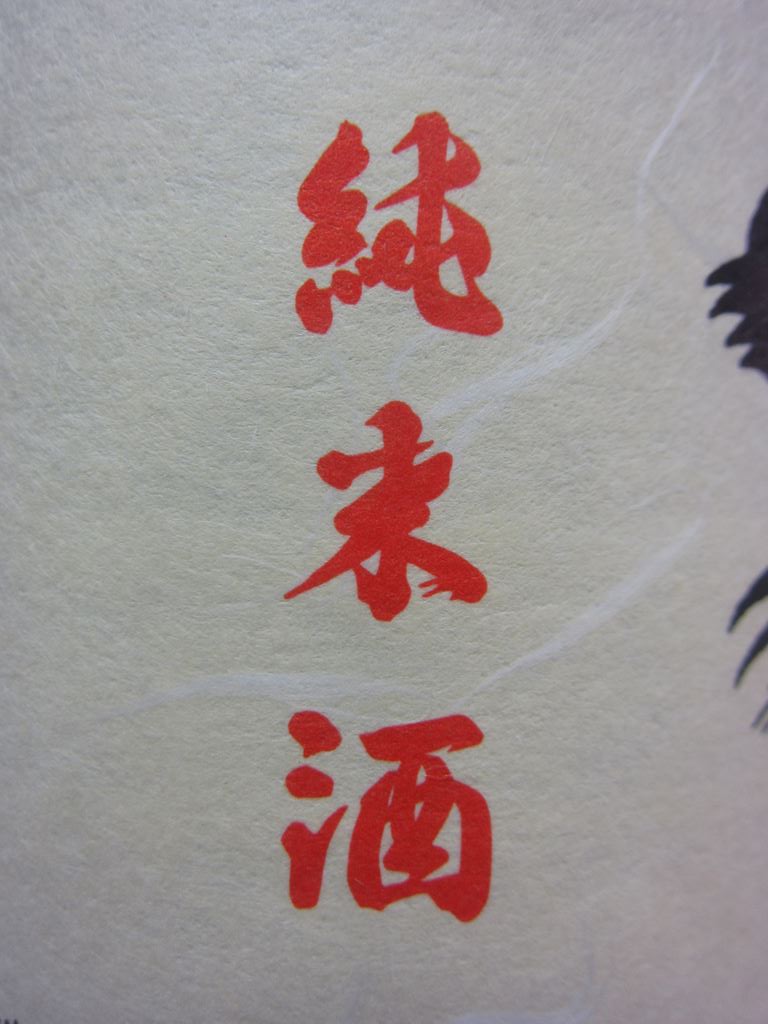 純米酒